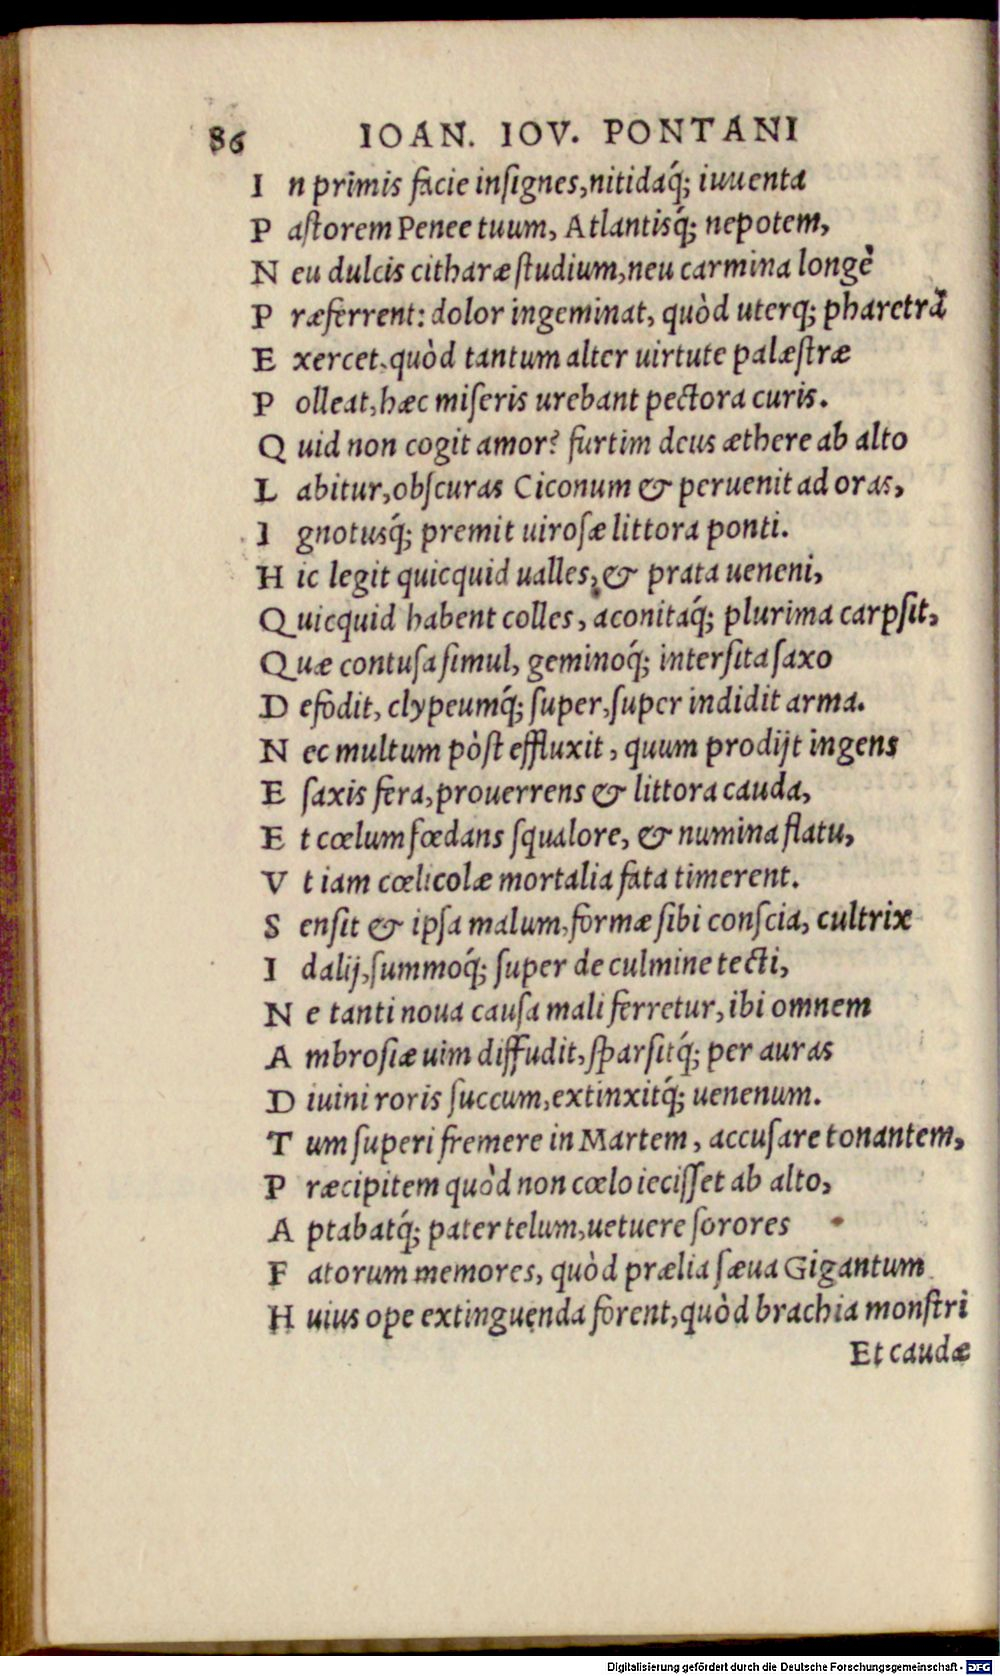 86 IOAN. IOV. PONTANI
I n primis facie insignes, nitidaq́; iuuenta
P astorem Penee tuum, Atlantisq́; nepotem,
N eu dulcis citharæ studium, neu carmina longè
P ræferrent: dolor ingeminat, quòd uterq; pharetrã
E xercet, quòd tantum alter uirtute palæstræ
P olleat, hæc miseris urebant pectora curis.
Q uid non cogit amor? furtim deus æthere ab alto
L abitur, obscuras Ciconum & peruenit ad oras,
I gnotusq́; premit uirosæ littora ponti.
H ic legit quicquid ualles, & prata ueneni,
Q uicquid habent colles, aconitaq́; plurima carpsit,
Q uæ contusa simul, geminoq́; intersita saxo
D efodit, clypeumq́; super, super indidit arma.
N ec multum pòst effluxit, quum prodijt ingens
E saxis fera, prouerrens & littora cauda,
E t cœlum fœdans squalore, & numina flatu,
V t iam cœlicolæ mortalia fata timerent.
S ensit & ipsa malum, formæ sibi conscia, cultrix
I dalij, summoq́; super de culmine tecti,
N e tanti noua causa mali ferretur, ibi omnem
A mbrosiæ uim diffudit, sparsitq́; per auras
D iuini roris succum, extinxitq́; uenenum.
T um superi fremere in Martem, accusare tonantem,
P ræcipitem quòd non cœlo iecisset ab alto,
A ptabatq́; pater telum, uetuere sorores
F atorum memores, quòd prælia sæua Gigantum
H uius ope extinguenda forent, quòd brachia monstri
Et caudæ
Digitalisierung gefördert durch die Deutsche Forschungsgemeinschaft - DFG